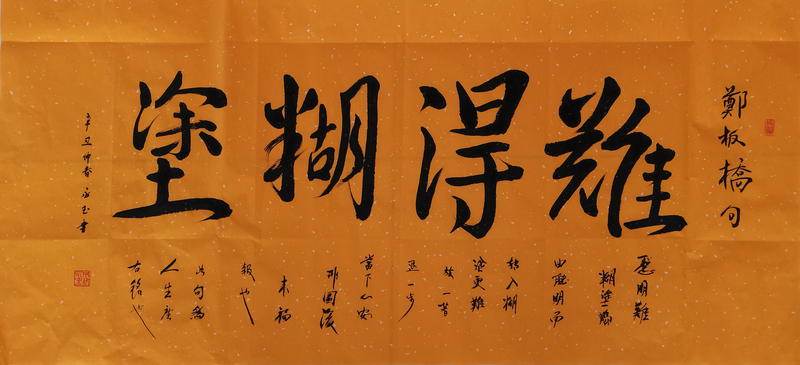 鄭板橋句
難得糊塗
聰明難
糊塗難
由聰明而
轉入糊
塗更難
放一著
退一步
當下心安
非圖後
來福
報也
此句為
人生座
右銘也
辛丑仲春 玉書